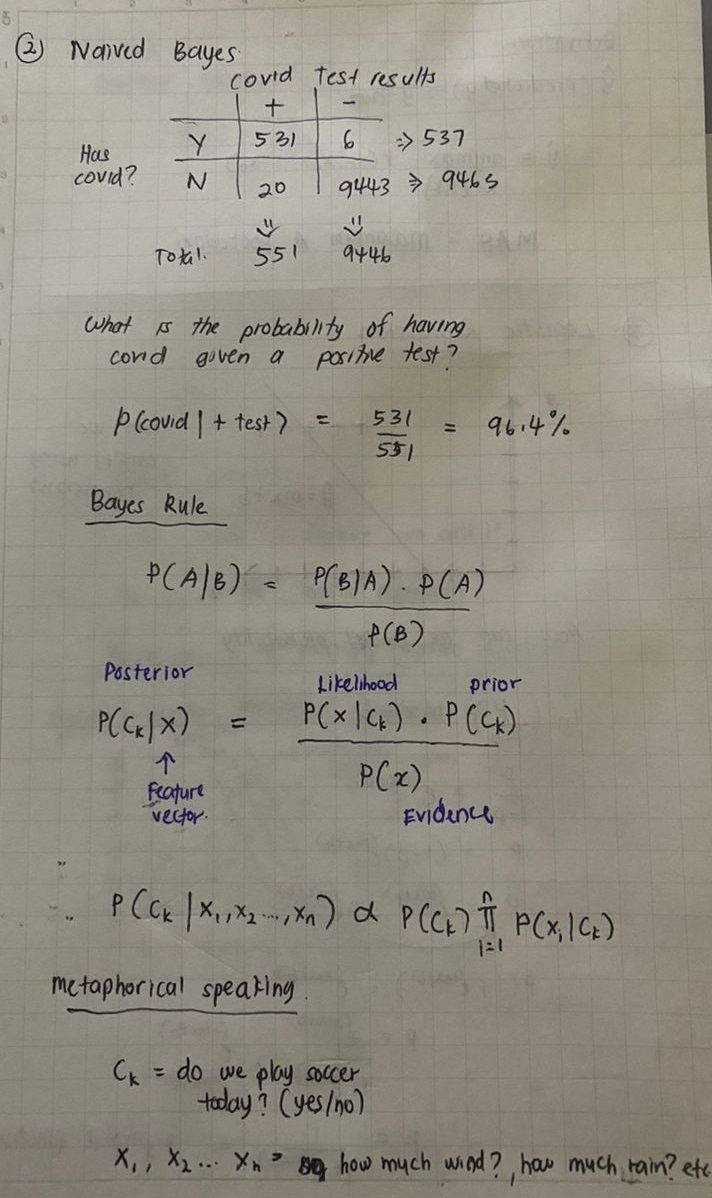 ② Naived Bayes.
covid test results
+ -
Y 531 6 => 537
Has covid?
N 20 9443 => 9463
Total. 551 9446
What is the probability of having
covid given a positive test?
P(covid | + test) = 531/551 = 96.4%
Bayes Rule
P(A|B) = P(B|A) . P(A)
P(B)
Posterior Likelihood prior
P(Ck|x) = P(x|Ck) . P(Ck)
↑ P(x)
Feature
vector. Evidence
P(Ck | x1, x2 ..., xn) ∝ P(Ck) n∏i=1 P(xi|Ck)
metaphorical speaking.
Ck = do we play soccer
today? (yes/no)
x1, x2 ... xn = how much wind?, how much rain? etc